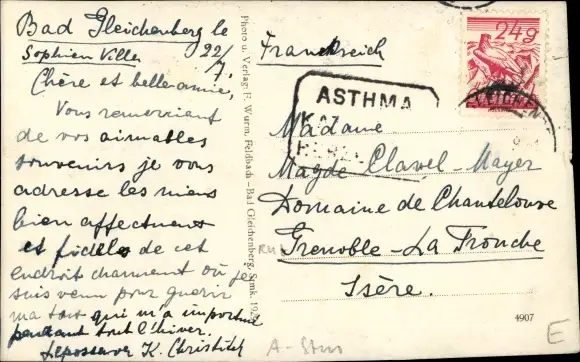 Bad Gleichenberg le
Sophien Villa 22/7.
Chère et belle amie,
Vous remerciant
de vos aimables
souvenirs je vous
adresse les miens
bien affectueux
et fidèles de cet
endroit charmant où je
suis venu pour guérir
ma toux qui m'a importuné
pendant tout l'hiver.
K. Christitch
Photo u. Verlag: F. Wurm, Feldbach - Bad Gleichenberg, Stmk.
Frankreich
24g
ASTHMA
Madame
Magde Clavel-Mayer
Domaine de Chantelouve
Grenoble-La Tronche
Isère.
4907
E